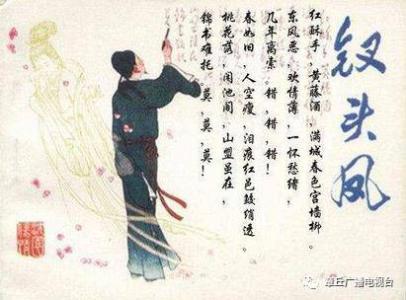 钗头凤
红酥手，黄藤酒，满城春色宫墙柳。
东风恶，欢情薄，一怀愁绪，
几年离索。错，错，错！
春如旧，人空瘦，泪痕红邑鲛绡透。
桃花落，闲池阁，山盟虽在，
锦书难托。莫，莫，莫！
章丘广播电视台